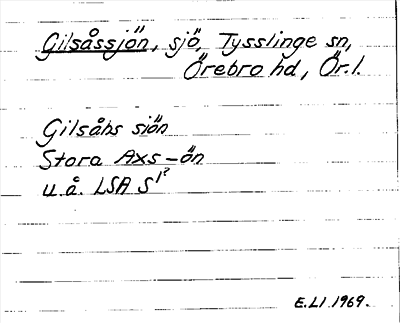 Gilsåssjön, sjö, Tysslinge sn,
Örebro hd, Ör.l.
Gilsåhs siön
Stora Axs-ön
u.å. LSA S1?
E.LI.1969.